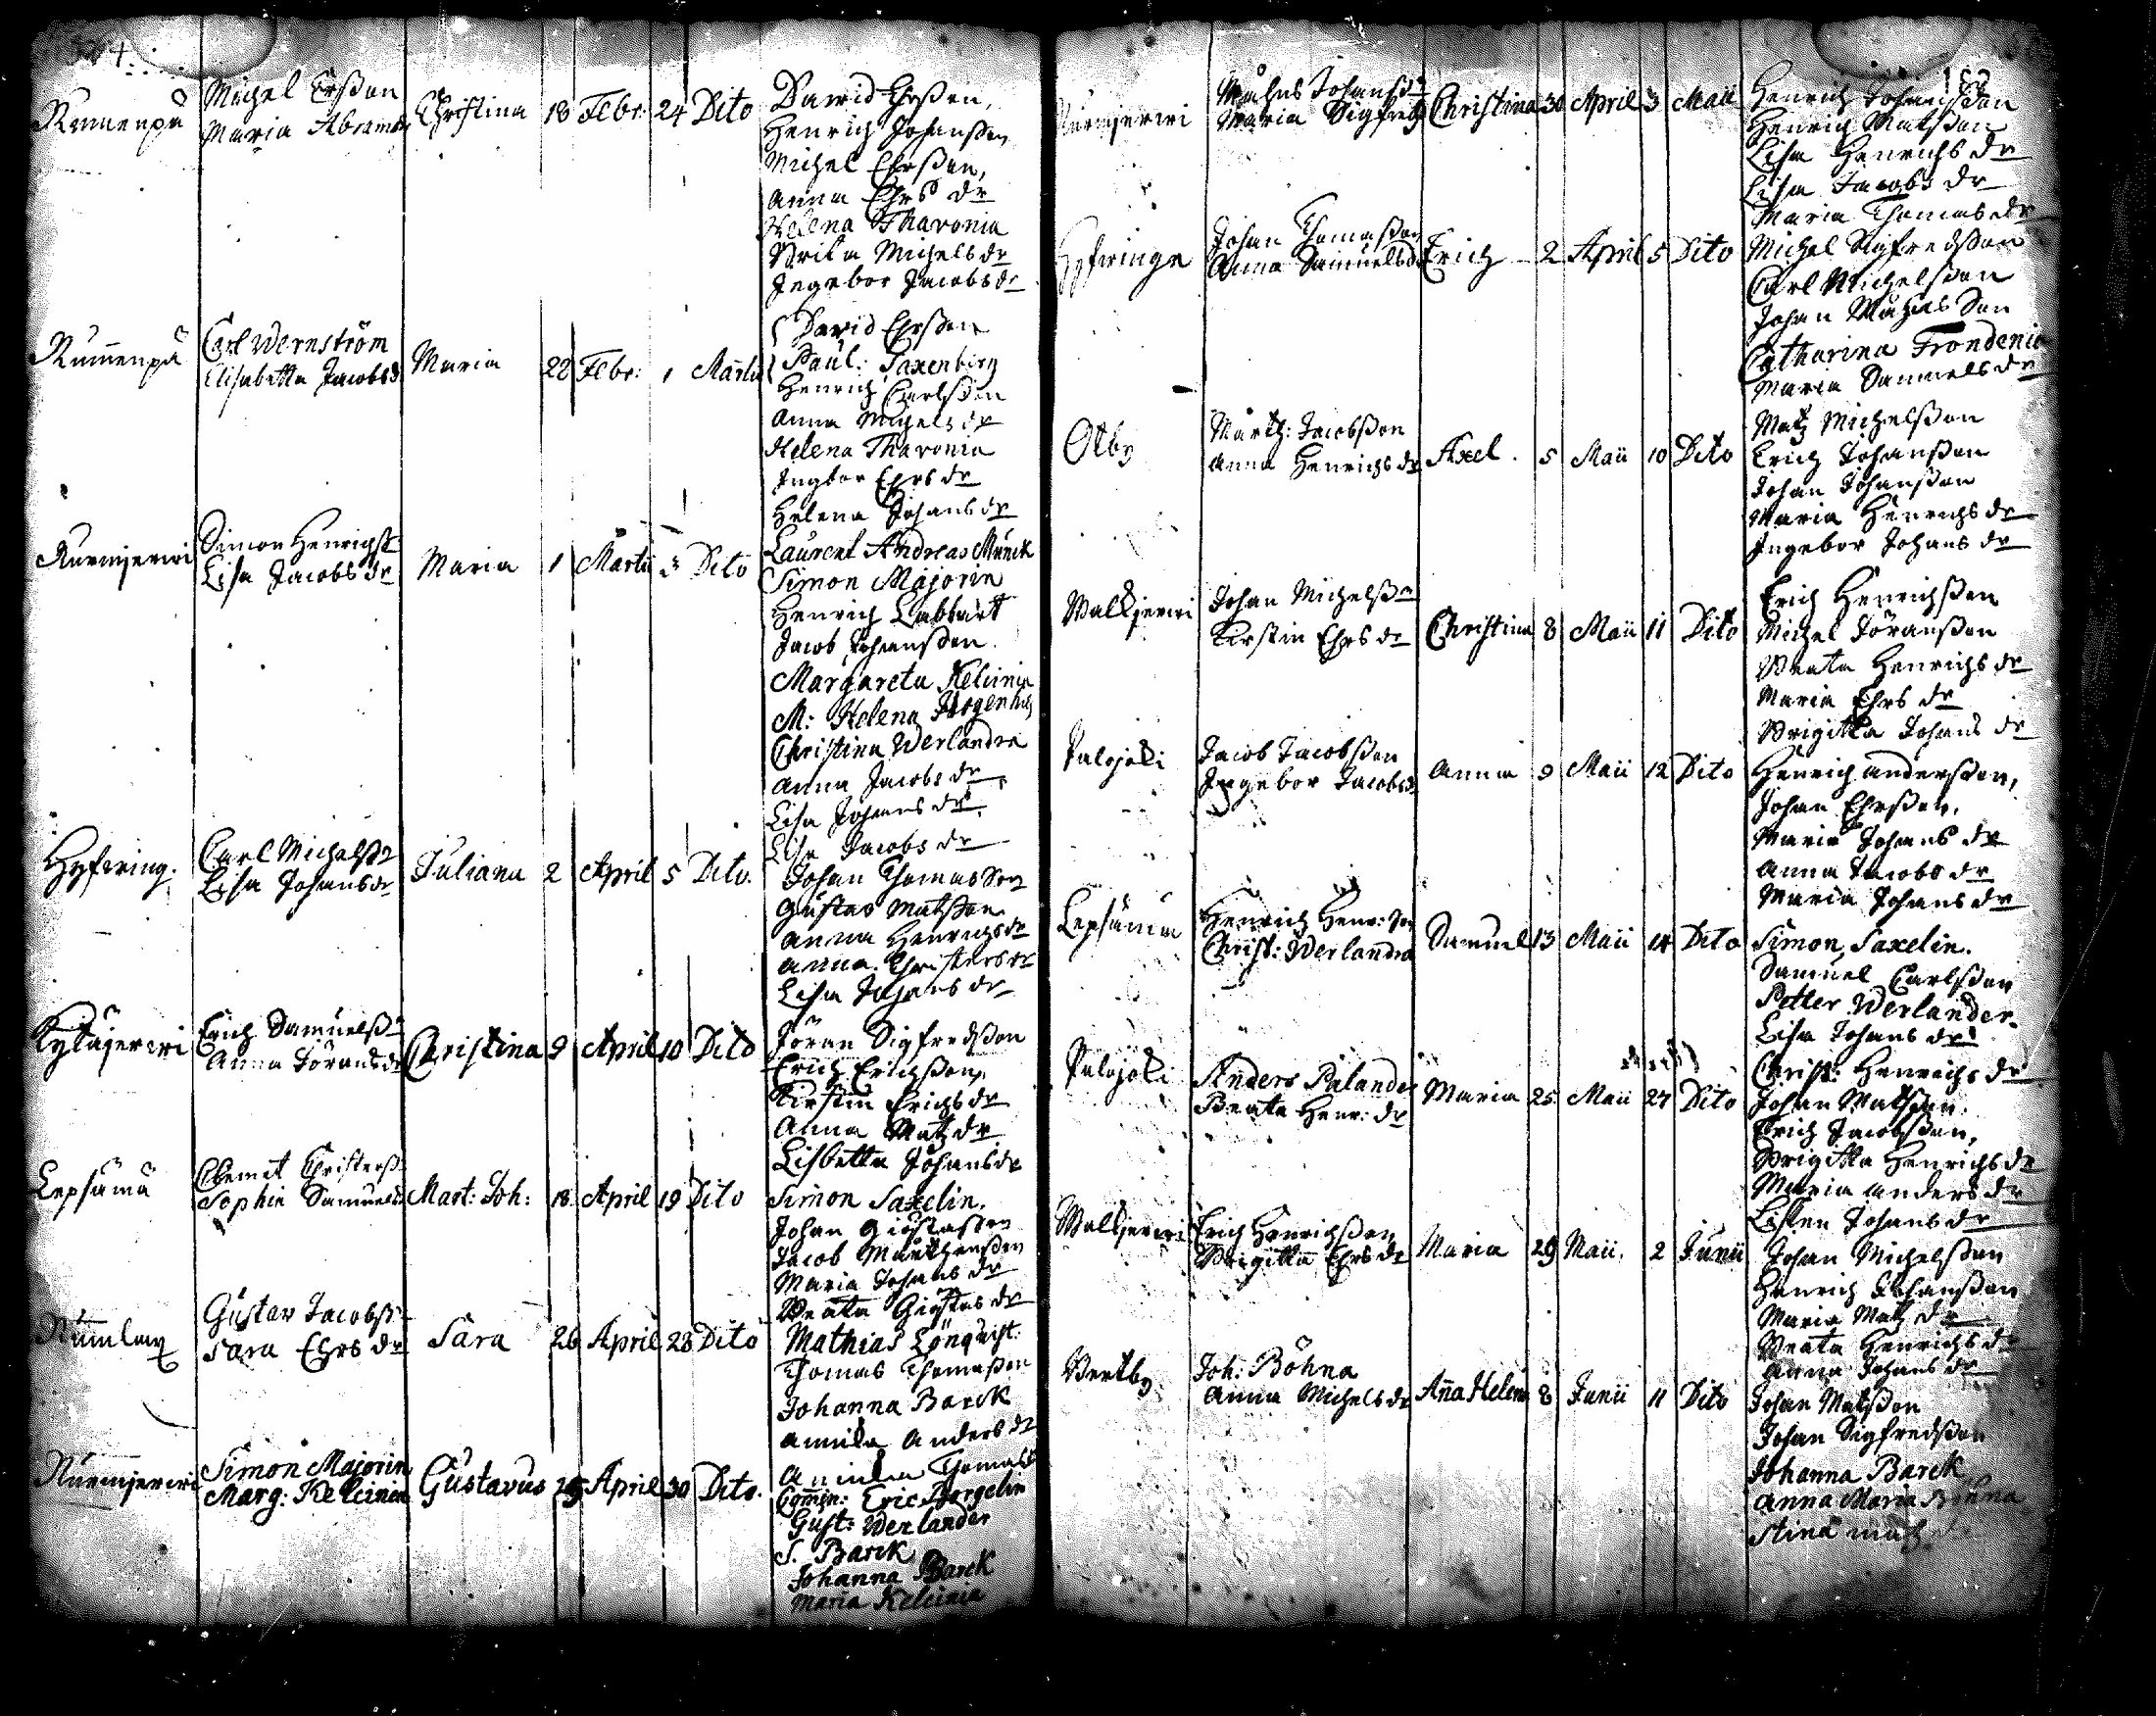 Michel Ersson
Rummenpä Maria Abrams Christina 18 Febr: 24 Dito
David Ehrsson,
Henrich Johansson
Michel Ehrsson,
Anna Ehrs dr
Helena Thavonia
Brita Michels dr
Ingebor Jacobs dr
Rummenpä Carl Wernström
Elisabetta Jacobsd Maria 22 Febr: 1 Martii
David Ehrsson
Paul: Saxenberg
Henrich Carlsson
Anna Michels dr
Helena Thavonia
Ingbor Ehrs dr
Helena Johans dr
Nurmjerwi Simon Henrichs
Lisa Jacobs dr Maria 1 Martii 3 Dito
Laurent Andreas Munck
Simon Majorin
Henrich Labbart
Jacob Johansson
Margareta Kelcinia
M: Helena
Christina Werlandra
Anna Jacobs dr
Lisa Johans dr
Lisa Jacobs dr
Hyfwing. Carl Michelss
Lisa Johans dr Juliana 2 April 5 Dito.
Johan Thomas Son
Gustav Matsson
Anna Henrichs dr
Anna Christers dr
Lisa Johans dr
Kytäjerwi Erich Samuelss
Anna Jörans dr Christina 9 April 10 Dito
Jöran Sigfredsson
Erich Erichsson,
Kirstin Erichs dr
Anna Matz dr
Lisbetta Johans dr
Lepsämä Clemet Christerss
Sophia Samuels Mart: Joh: 18 April 19 Dito
Simon Saxelin.
Johan Giöstasson
Jacob Mårthensson
Maria Johans dr
Beata Giöstas dr
Gustav Jacobss
Sara Ehrs dr Sara 26 April 28 Dito
Mathias Lönquist:
Thomas Thomasson
Johanna Barck
Annila Anders dr
Annila Thomas
Nurmjerwi Simon Majorin
Marg: Kelcinia Gustavus 29 April 30 Dito.
Eric Borgelin
Gust: Werlander
S. Barck
Johanna Barck
Maria Kelcinia
Nurmjerwi Mathes Johans
Maria Sigfreds Christina 30 April 3 Maii
Henrich Johansson
Henrich Matsson
Lisa Henrichs dr
Lisa Jacobs dr
Maria Thomas dr
Hyfwinge Johan Thomasson
Anna Samuelsd Erich 2 April 5 Dito
Michel Sigfredsson
Carl Michelsson
Johan Mathes Son
Catharina Frondenia
Maria Samuels dr
Olby Mårth: Jacobsson
Anna Henrichs dr Axel. 5 Maii 10 Dito
Matz Michelsson
Erich Johansson
Johan Johansson
Maria Henrichs dr
Ingebor Johans dr
Walkjerwi Johan Michelsson
Kirstin Ehrs dr Christina 8 Maii 11 Dito
Erich Henrichsson
Michel Jöransson
Beata Henrichs dr
Maria Ehrs dr
Brigitta Johans dr
Palojoki Jacob Jacobsson
Ingebor Jacobsd Anna 9 Maii 12 Dito
Henrich Andersson,
Johan Ehrsson,
Maria Johans dr
Anna Jacobs dr
Maria Johans dr
Lepsämä Henrich Henr: son
Christ: Werlandra Samuel 13 Maii 14 Dito
Simon Saxelin.
Samuel Carlsson
Petter Werlander.
Lisa Johans dr
Christ: Henrichs dr
Palojoki Anders Palander
Beata Henr: dr Maria 25 Maii 27 Dito
Johan Matsson.
Erich Jacobsson,
Brigitta Henrichs dr
Maria Anders dr
Listen Johans dr
Walkjerwi Erich Henrichsson
Brigitta Ehrs dr Maria 29 Maii. 2 Junii
Johan Michelsson
Henrich Johansson
Maria Matz dr
Beata Henrichs dr
Anna Johans dr
Pertby Joh: Böhna
Anna Michels dr Aña Helena 8 Junii 11 Dito
Johan Matsson
Johan Sigfredsson
Johanna Barck
Anna Maria Böhna
Stina